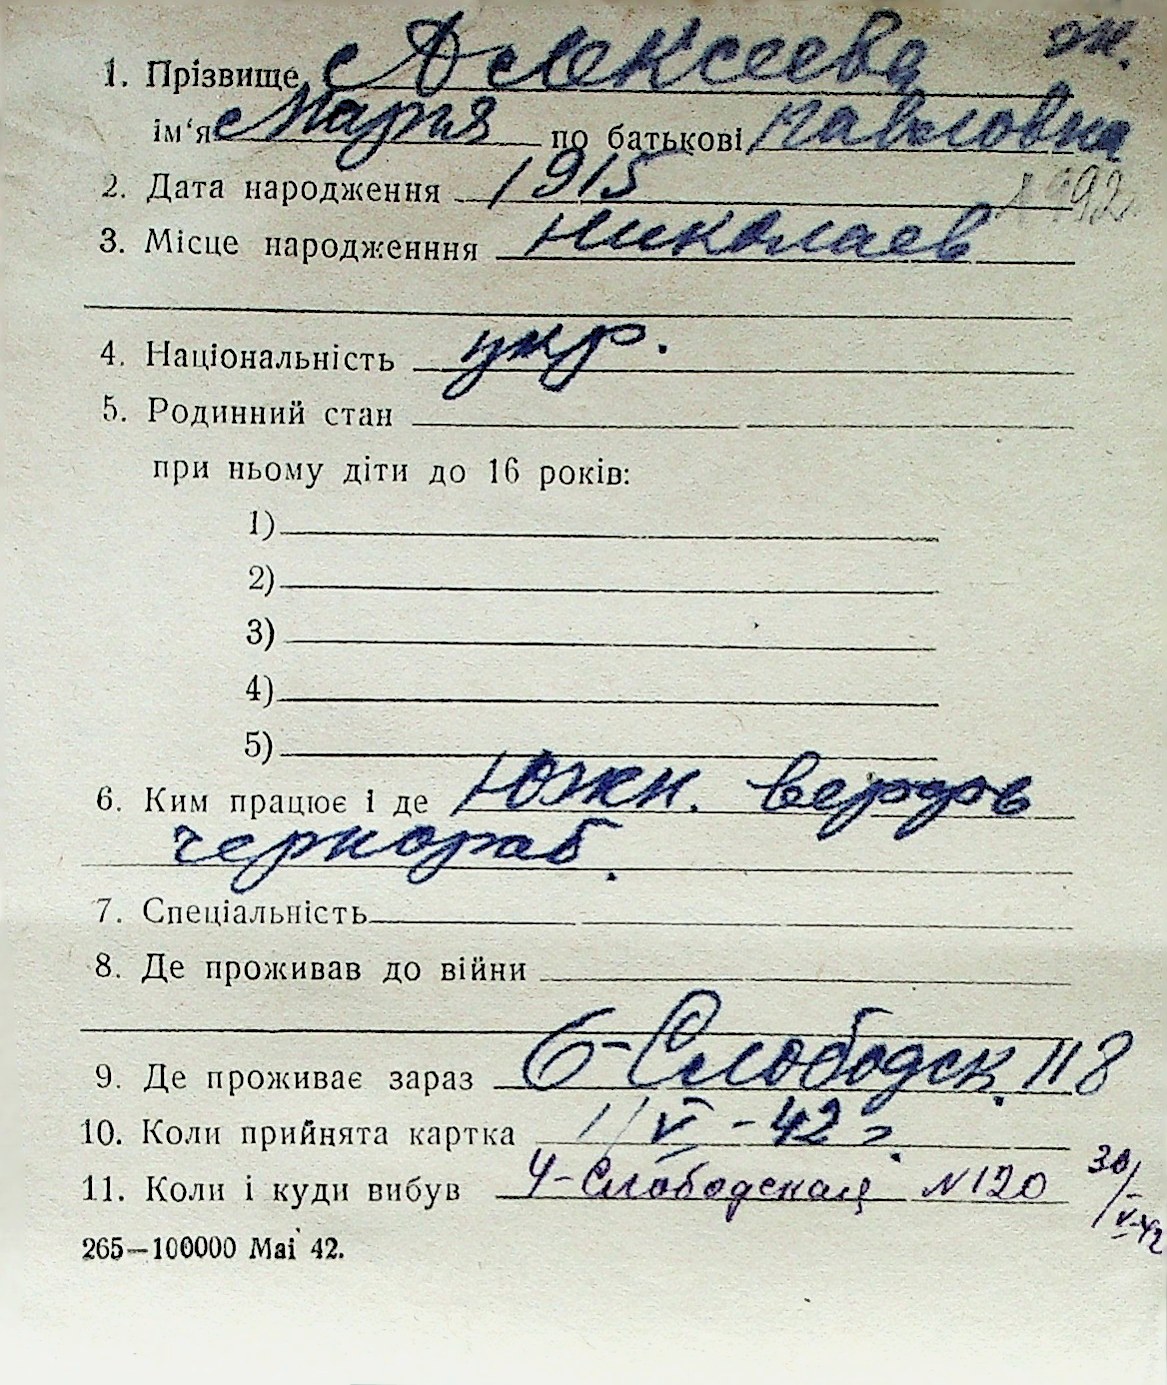 1. Прізвище Алексеева ж.
ім'я Мария по батькові Павловна
2. Дата народження 1915
3. Місце народженння Николаев
4. Національність укр.
5. Родинний стан
при ньому діти до 16 років:
1)
2)
3)
4)
5)
6. Ким працює і де Южн. верфь
чернораб.
7. Спеціальність
8. Де проживав до війни
9. Де проживає зараз 6-Слободск. 118
10. Коли прийнята картка 11/V-42 г.
11. Коли і куди вибув 4-Слободская N120 30/V-42
265—100000 Mai 42.